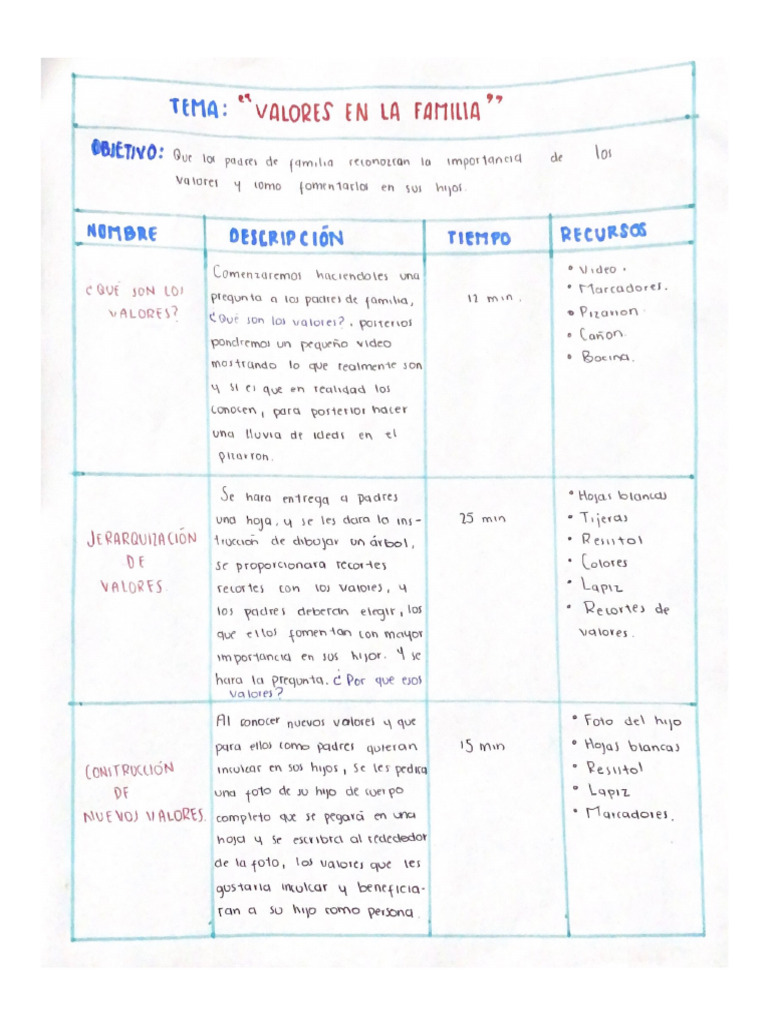 TEMA: "VALORES EN LA FAMILIA"
OBJETIVO: Que los padres de familia reconozcan la importancia de los
valores y como fomentarlos en sus hijos.
NOMBRE
DESCRIPCIÓN
TIEMPO
RECURSOS
¿QUÉ SON LOS
VALORES?
Comenzaremos haciendoles una
pregunta a los padres de familia,
¿Qué son los valores?. posterios
pondremos un pequeño video
mostrando lo que realmente son
y si es que en realidad los
conocen, para posterior hacer
una lluvia de ideas en el
pizarron.
12 min.
• Video.
• Marcadores.
• Pizarron.
• Cañon.
• Bocina.
JERARQUIZACIÓN
DE
VALORES
Se hara entrega a padres
una hoja, y se les dara la ins-
trucción de dibujar un árbol,
se proporcionara recortes
recortes con los valores, y
los padres deberan elegir, los
que ellos fomentan con mayor
importancia en sus hijor. Y se
hara la pregunta. ¿Por que esos
valores?
25 min
• Hojas blancas
• Tijeras
• Resistol
• Colores
• Lapiz
• Recortes de
valores.
CONSTRUCCIÓN
DE
NUEVOS VALORES.
Al conocer nuevos valores y que
para ellos como padres quieran
inculcar en sus hijos, se les pedira
una foto de su hijo de cuerpo
completo que se pegará en una
hoja y se escribira al rededeador
de la foto, los valores que les
gustaria inculcar y beneficia-
ran a su hijo como persona.
15 min
• Foto del hijo
• Hojas blancas
• Resistol
• Lapiz
• Marcadores.